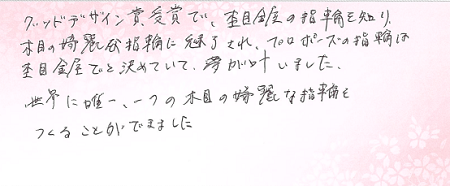 グッドデザイン賞受賞で、杢目金屋の指輪を知り、
木目の綺麗な指輪に魅了され、プロポーズの指輪は
杢目金屋でと決めていて、夢が叶いました。
世界に唯一、一つの木目の綺麗な指輪を
つくることができました